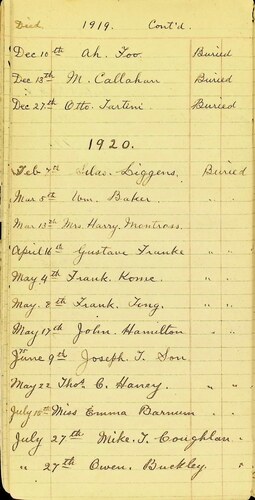 Died 1919. Cont'd.
Dec 10th Ah. Foo. Buried
Dec 13th M. Callahan Buried
Dec 27th Otto. Tartini. Buried
1920.
Feb 7th Silas. Diggens. Buried
Mar 5th Wm. Baker. " "
Mar 13th Mrs. Harry. Montross.
April 16th Gustave Franke " "
May 4th Frank. Kome. " "
May. 8th Frank. Ting. " "
May 17th John. Hamilton " "
June 9th Joseph. T. Son
May 22 Thos. C. Haney. " "
July 15th Miss Emma Barnum " "
July 27th Mike. T. Coughlan. "
" 27th Owen. Buckley "